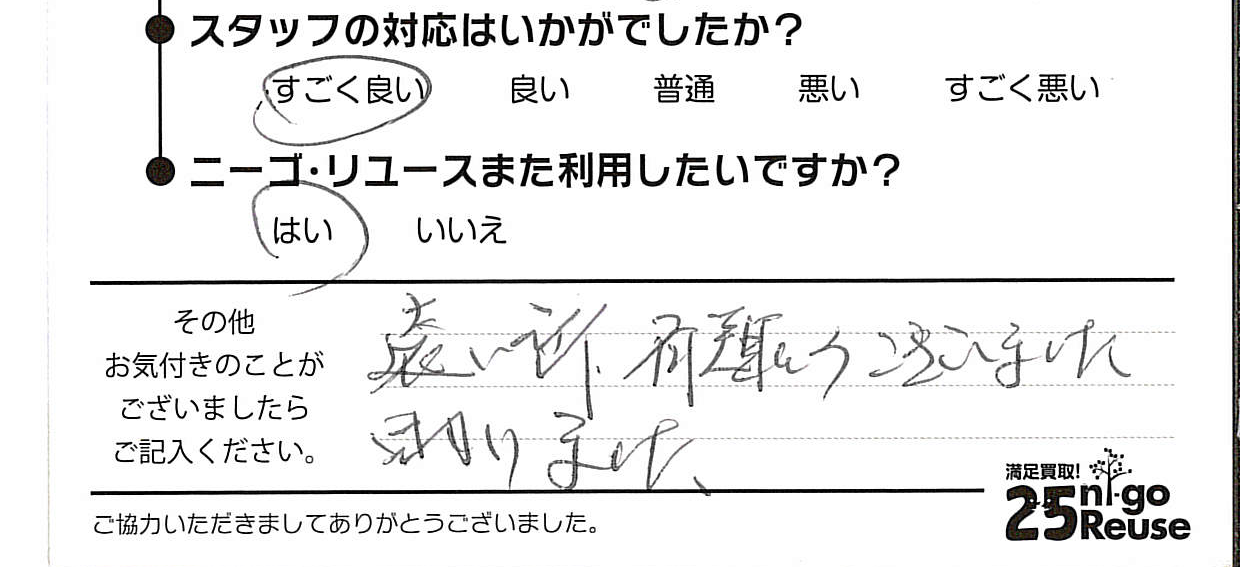 スタッフの対応はいかがでしたか?
すごく良い 良い 普通 悪い すごく悪い
ニーゴ・リユースまた利用したいですか?
はい いいえ
その他
お気付きのことが
ございましたら
ご記入ください。
遠い所、有難とうございました
助かりました、
満足買取!
25 ni-go Reuse
ご協力いただきましてありがとうございました。